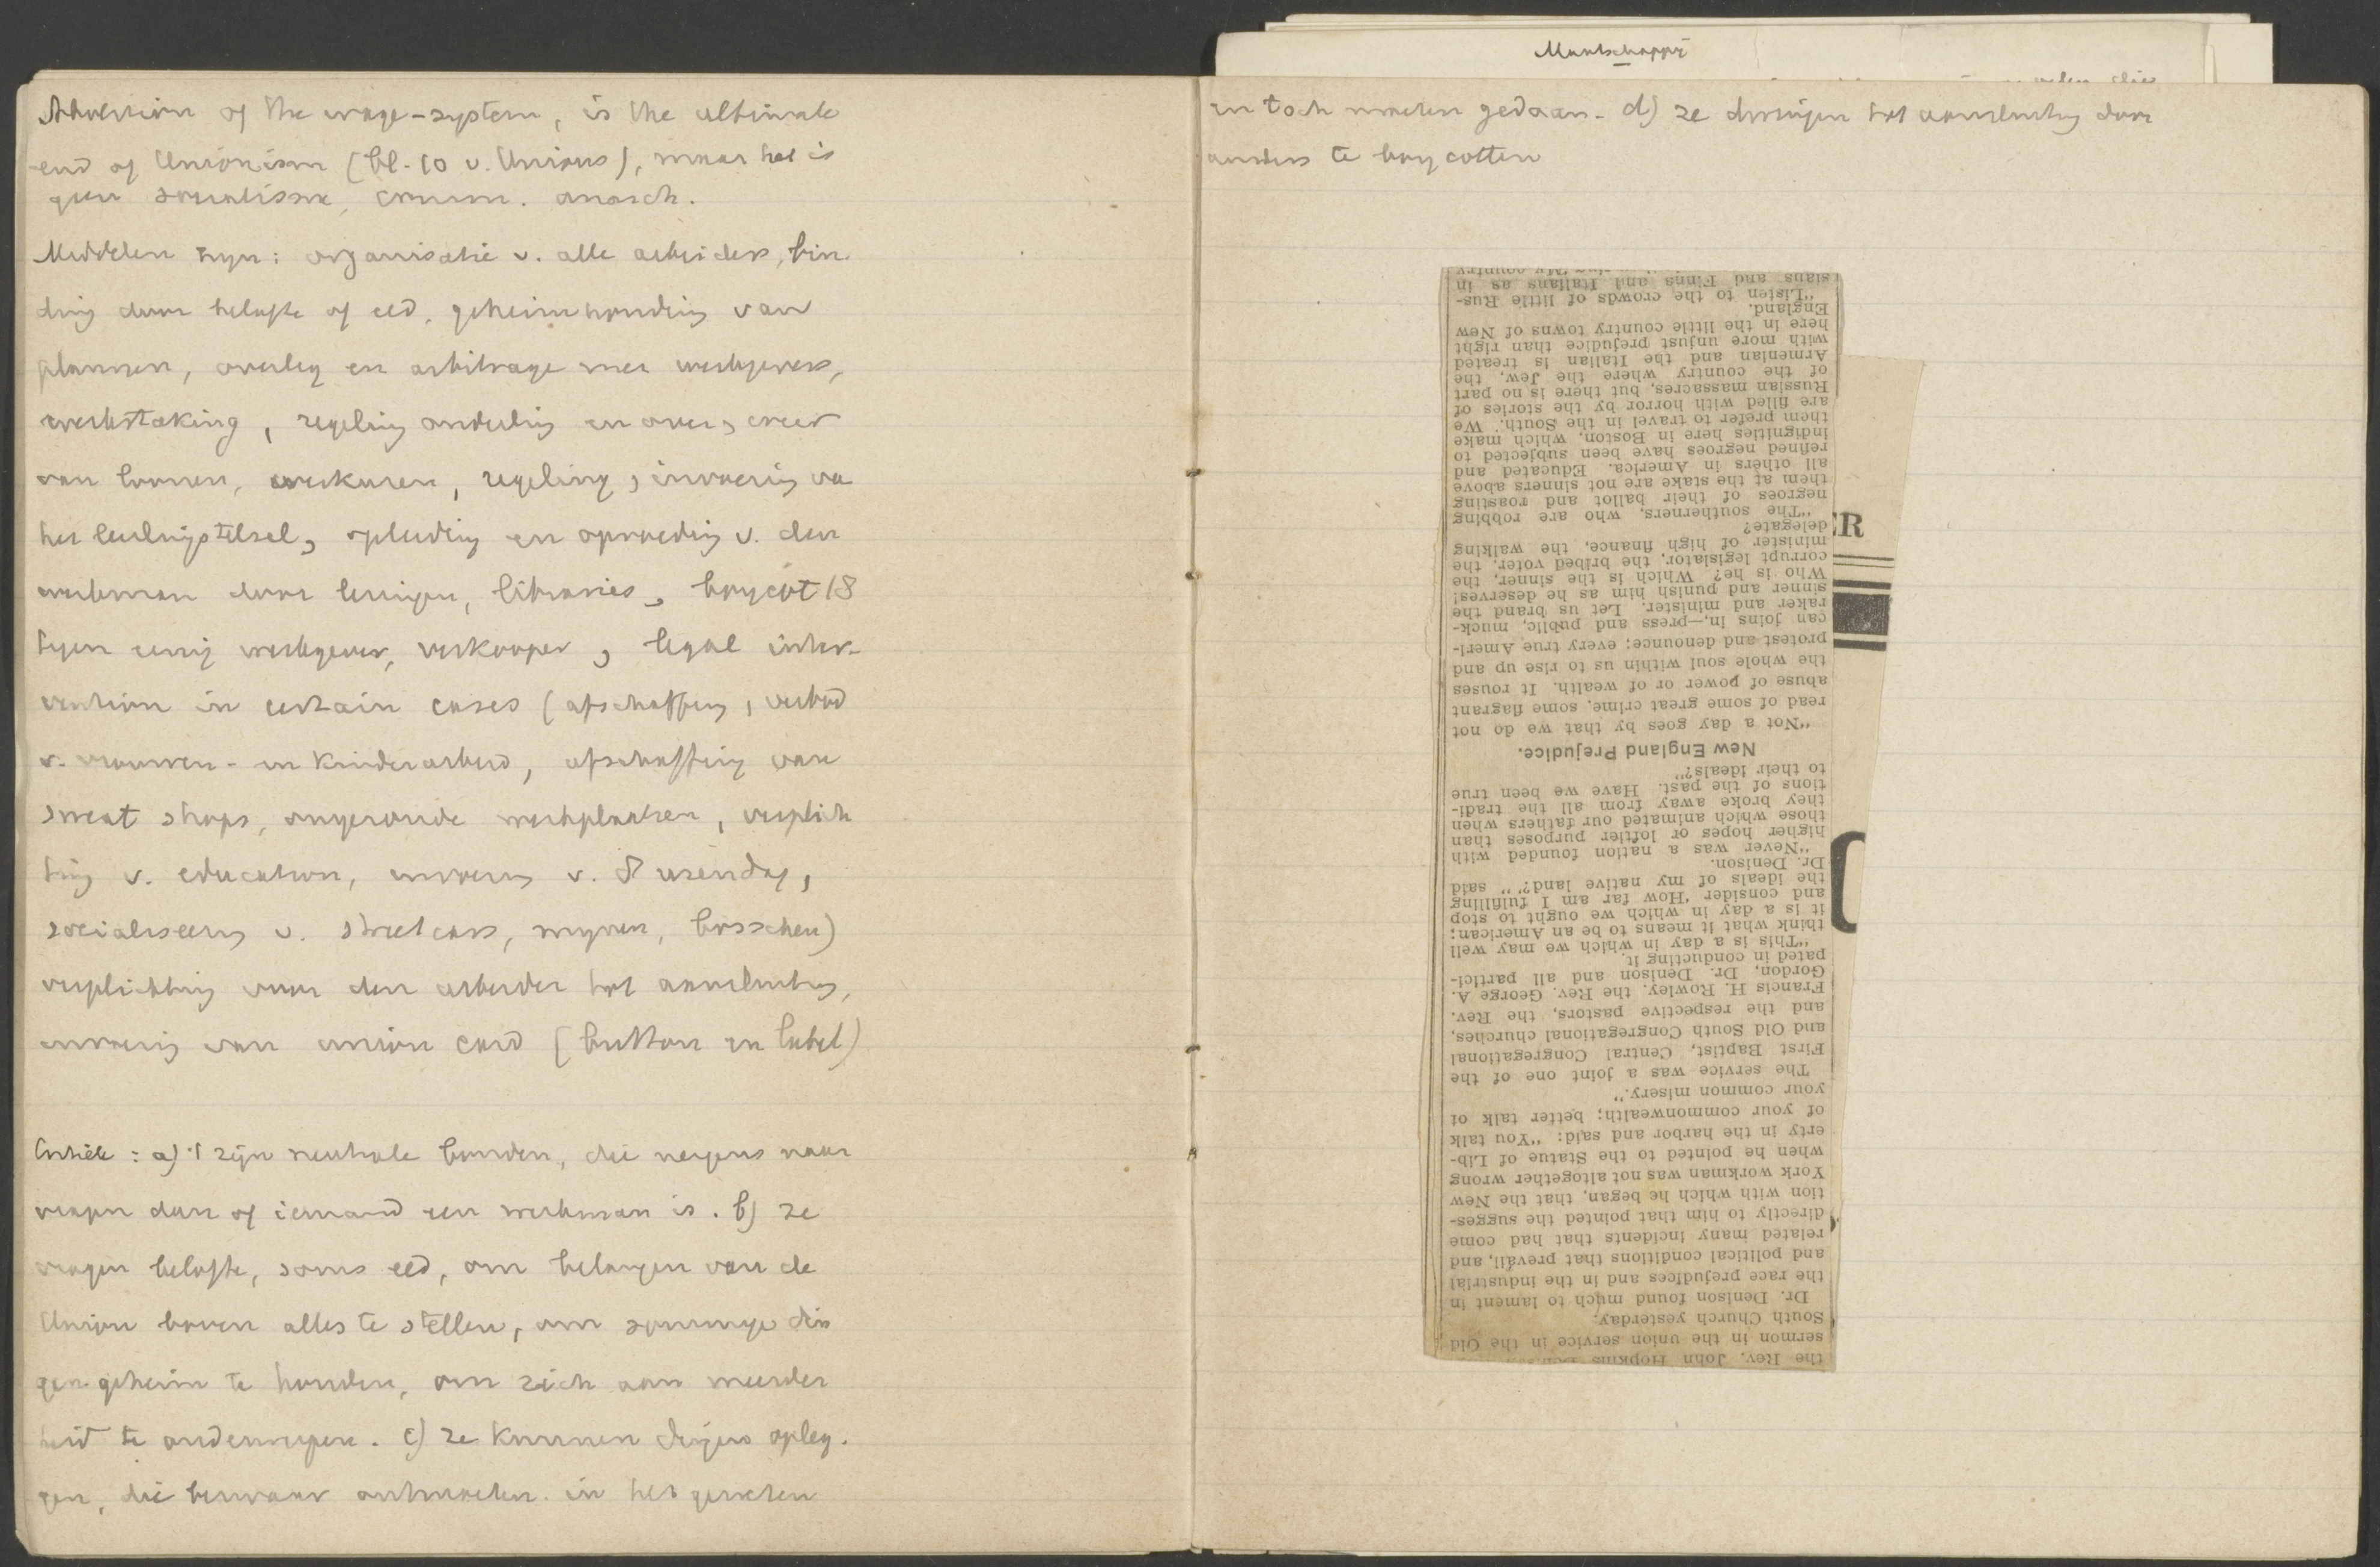 Abolition of the wage-system, is the ultimate
end of Unionism (bl. 10 v. Unions), maar het is
geen socialisme, comm. anarch.
Middelen zyn: organisatie v. alle arbeiders, bin-
ding door belofte of eed, geheimhouding van
plannen, overleg en arbitrage met werkgevers,
werkstaking, regeling onderling en over
van loonen, werkuren, regeling, invoering va
het leerlingstelsel, opleiding en opvoeding v. den
werkman door lezingen, libraries, boycot
tegen eenig werkgever, verkooper, legal inter-
vention in certain cases (afschaffing, verbod
v. vrouwen- en kinderarbeid, afschaffing van
sweat shops, ongezonde werkplaatsen, verplich
ting v. education, invoering v. 8 urendag,
socialiseering v. streetcars, mynen, bosschen)
verplichting voor den arbeider tot aansluiting,
invoering van union card (button en label)
Critiek: a) 't zijn neutrale bonden, die nergens naar
vragen dan of iemand een werkman is. b) ze
vragen belofte, soms eed, om belangen van de
Union boven alles te stellen, om sommige din
gen geheim te houden, om zich aan meerder
heid te onderwerpen. c) ze kunnen dingen opleg-
gen, die bezwaar ontmoeten in het geweten
Maatschappij
en toch moeten gedaan. d) ze dwingen tot aansluiting door
anders te boycotten
the Rev. John Hopkins
sermon in the union service in the Old
South Church yesterday.
Dr. Denison found much to lament in
the race prejudices and in the industrial
and political conditions that prevail, and
related many incidents that had come
directly to him that pointed the sugges-
tion with which he began, that the New
York workman was not altogether wrong
when he pointed to the Statue of Lib-
erty in the harbor and said: "You talk
of your commonwealth; better talk of
your common misery."
The service was a joint one of the
First Baptist, Central Congregational
and Old South Congregational churches,
and the respective pastors, the Rev.
Francis H. Rowley, the Rev. George A.
Gordon, Dr. Denison and all partici-
pated in conducting it.
"This is a day in which we may well
think what it means to be an American;
it is a day in which we ought to stop
and consider 'How far am I fulfilling
the ideals of my native land?'" said
Dr. Denison.
"Never was a nation founded with
higher hopes or loftier purposes than
those which animated our fathers when
they broke away from all the tradi-
tions of the past. Have we been true
to their ideals?"
New England Prejudice.
"Not a day goes by that we do not
read of some great crime, some flagrant
abuse of power or of wealth. It rouses
the whole soul within us to rise up and
protest and denounce; every true Ameri-
can joins in,—press and public, muck-
raker and minister. Let us brand the
sinner and punish him as he deserves!
Who is he? Which is the sinner, the
corrupt legislator, the bribed voter, the
minister of high finance, the walking
delegate?
"The southerners, who are robbing
negroes of their ballot and roasting
them at the stake are not sinners above
all others in America. Educated and
refined negroes have been subjected to
indignities here in Boston, which make
them prefer to travel in the South. We
are filled with horror by the stories of
Russian massacres, but there is no part
of the country where the Jew, the
Armenian and the Italian is treated
with more unjust prejudice than right
here in the little country towns of New
England.
"Listen to the crowds of little Rus-
sians and Finns and Italians as in
ER